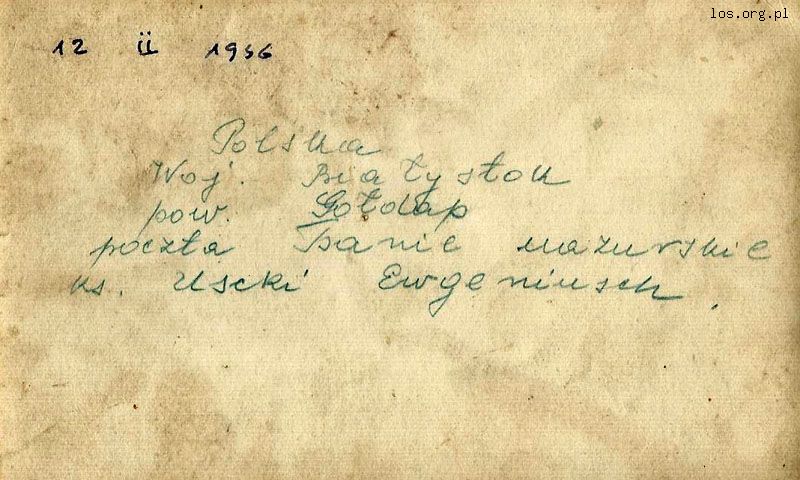 los.org.pl
12 II 1956
Polska
Woj. Białystok
pow. Gołdap
poczta Banie mazurskie
ks. Uscki Ewgeniusch.